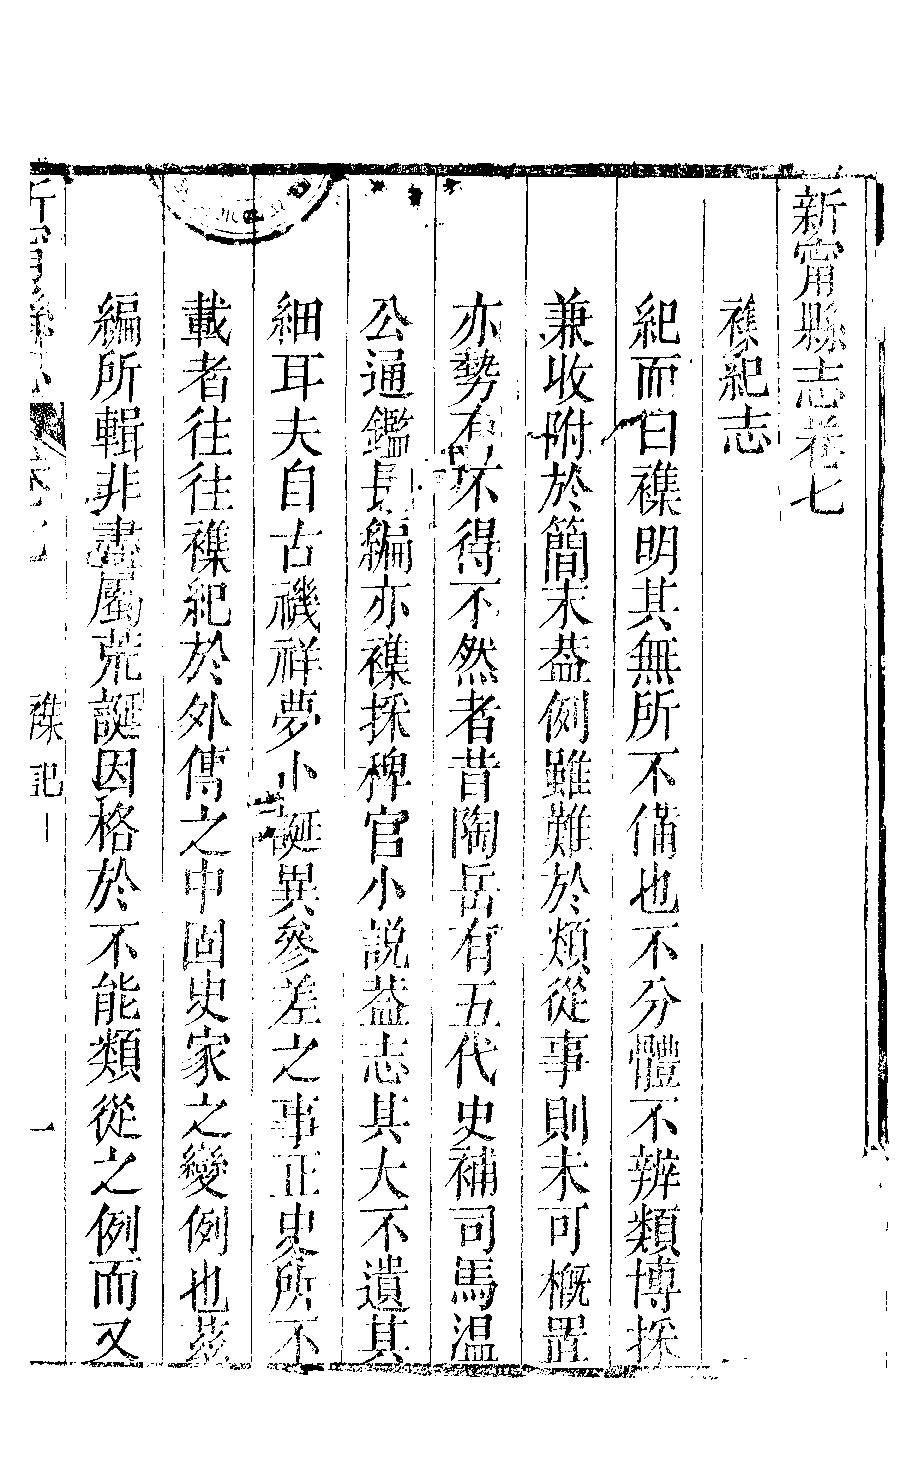 新甯縣志卷七
襍紀志
紀而曰襍明其無所不備也不分體不辨類博採
兼收附於簡末葢例雖難於類從事則未可槪置
亦勢有不得不然者昔陶岳有五代史補司馬温
公通鑑長編亦襍採稗官小説葢志其大不遺其
細耳夫自古禨祥夢卜誕異參差之事正史所不
載者往往襍紀於外傳之中固史家之變例也茲
編所輯非盡屬荒誕因格於不能類從之例而又
新甯縣志 卷七 襍記 一